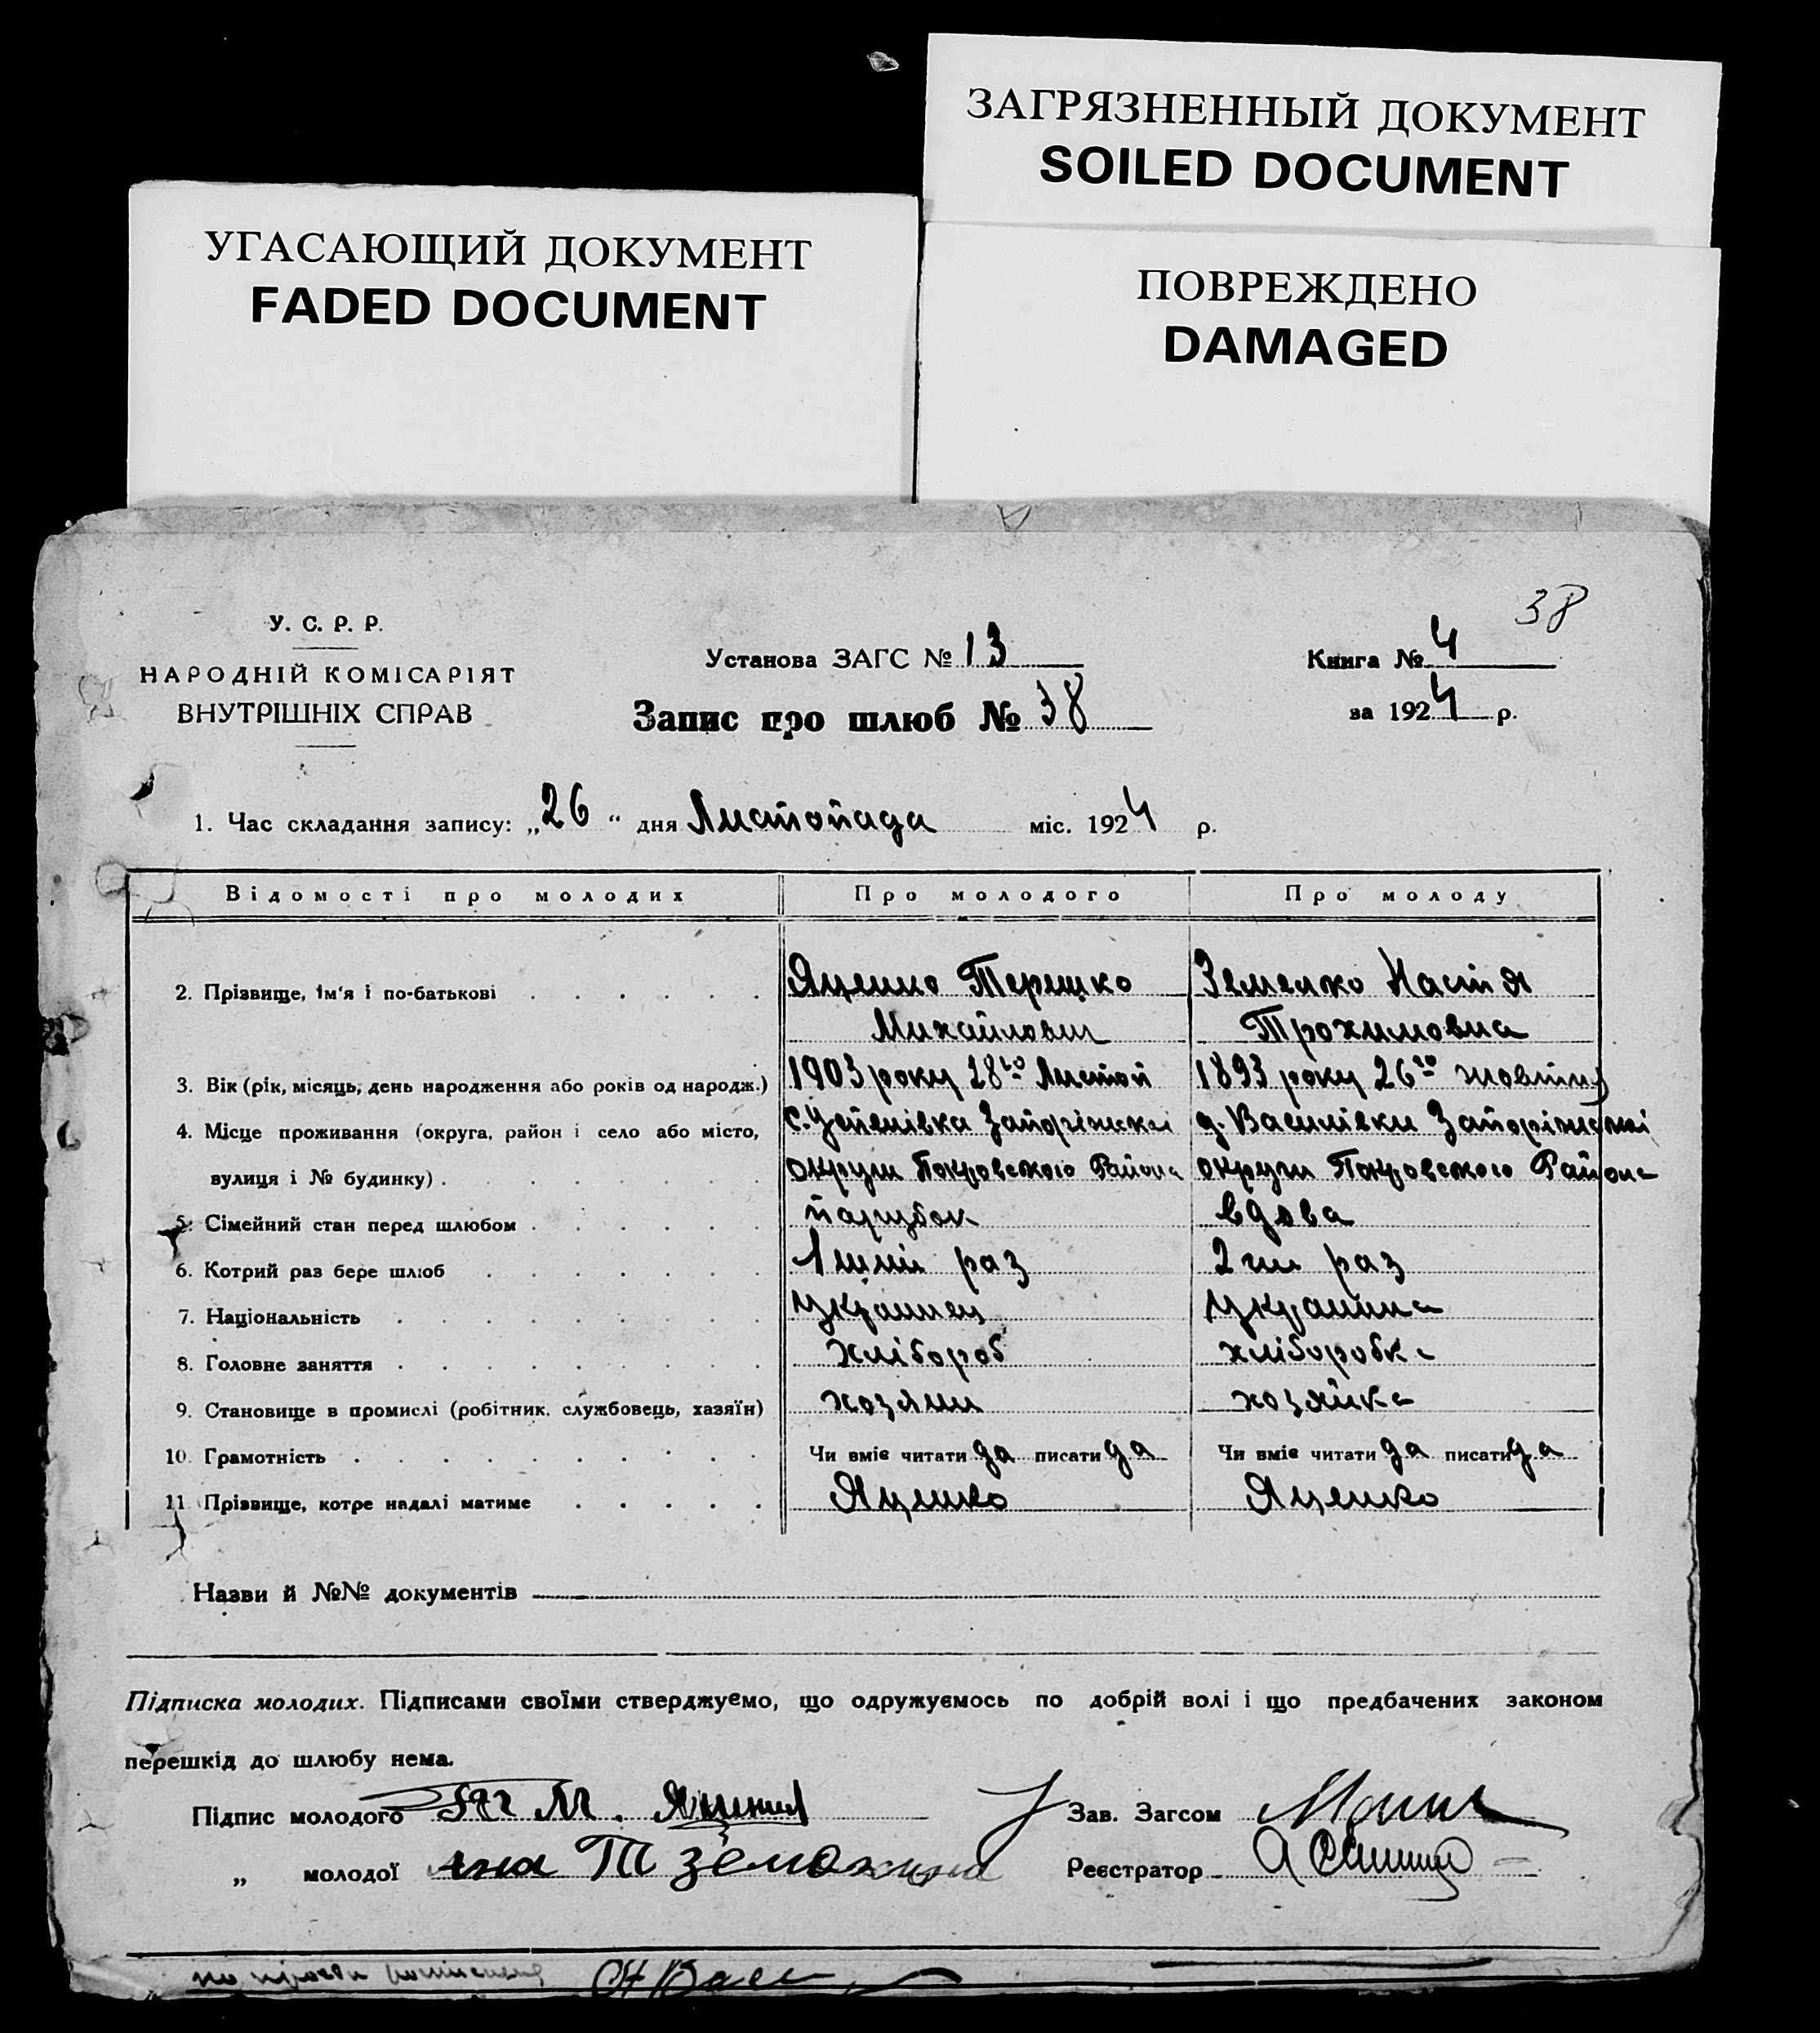 ЗАГРЯЗНЕННЫЙ ДОКУМЕНТ
SOILED DOCUMENT
УГАСАЮЩИЙ ДОКУМЕНТ
FADED DOCUMENT
ПОВРЕЖДЕНО
DAMAGED
38
У. С. Р. Р.
НАРОДНІЙ КОМІСАРІЯТ
ВНУТРІШНІХ СПРАВ
Установа ЗАГС № 13
Книга № 4
Запис про шлюб № 38
за 1924 р.
1. Час складання запису: „26“ дня Листопада міс. 1924 р.
Відомості про молодих Про молодого Про молоду
2. Прізвище, ім'я і по-батькові Яценко Терешко Земелко Настя
Михайлович Трохимовна
3. Вік (рік, місяць, день народження або років од народж.) 1903 року 28го Листоп 1893 року 26го жовтня
4. Місце проживання (округа, район і село або місто, с. Успенівка Запоріжскої д. Василівки Запоріжскої
вулиця і № будинку) округи Покровського Района округи Покровського Района
5. Сімейний стан перед шлюбом парубок вдова
6. Котрий раз бере шлюб 1 ший раз 2 ги раз
7. Національність українец українка
8. Головне заняття хлібороб хліборобка
9. Становище в промислі (робітник, службовець, хазяїн) хозяин хозяйка
10. Грамотність Чи вміє читати да писати да Чи вміє читати да писати да
11 Прізвище, котре надалі матиме Яценко Яценко
Назви й №№ документів
Підписка молодих. Підписами своїми стверджуємо, що одружуємось по добрій волі і що предбачених законом
перешкід до шлюбу нема.
Підпис молодого Зав. Загсом
„ молодої Реєстратор